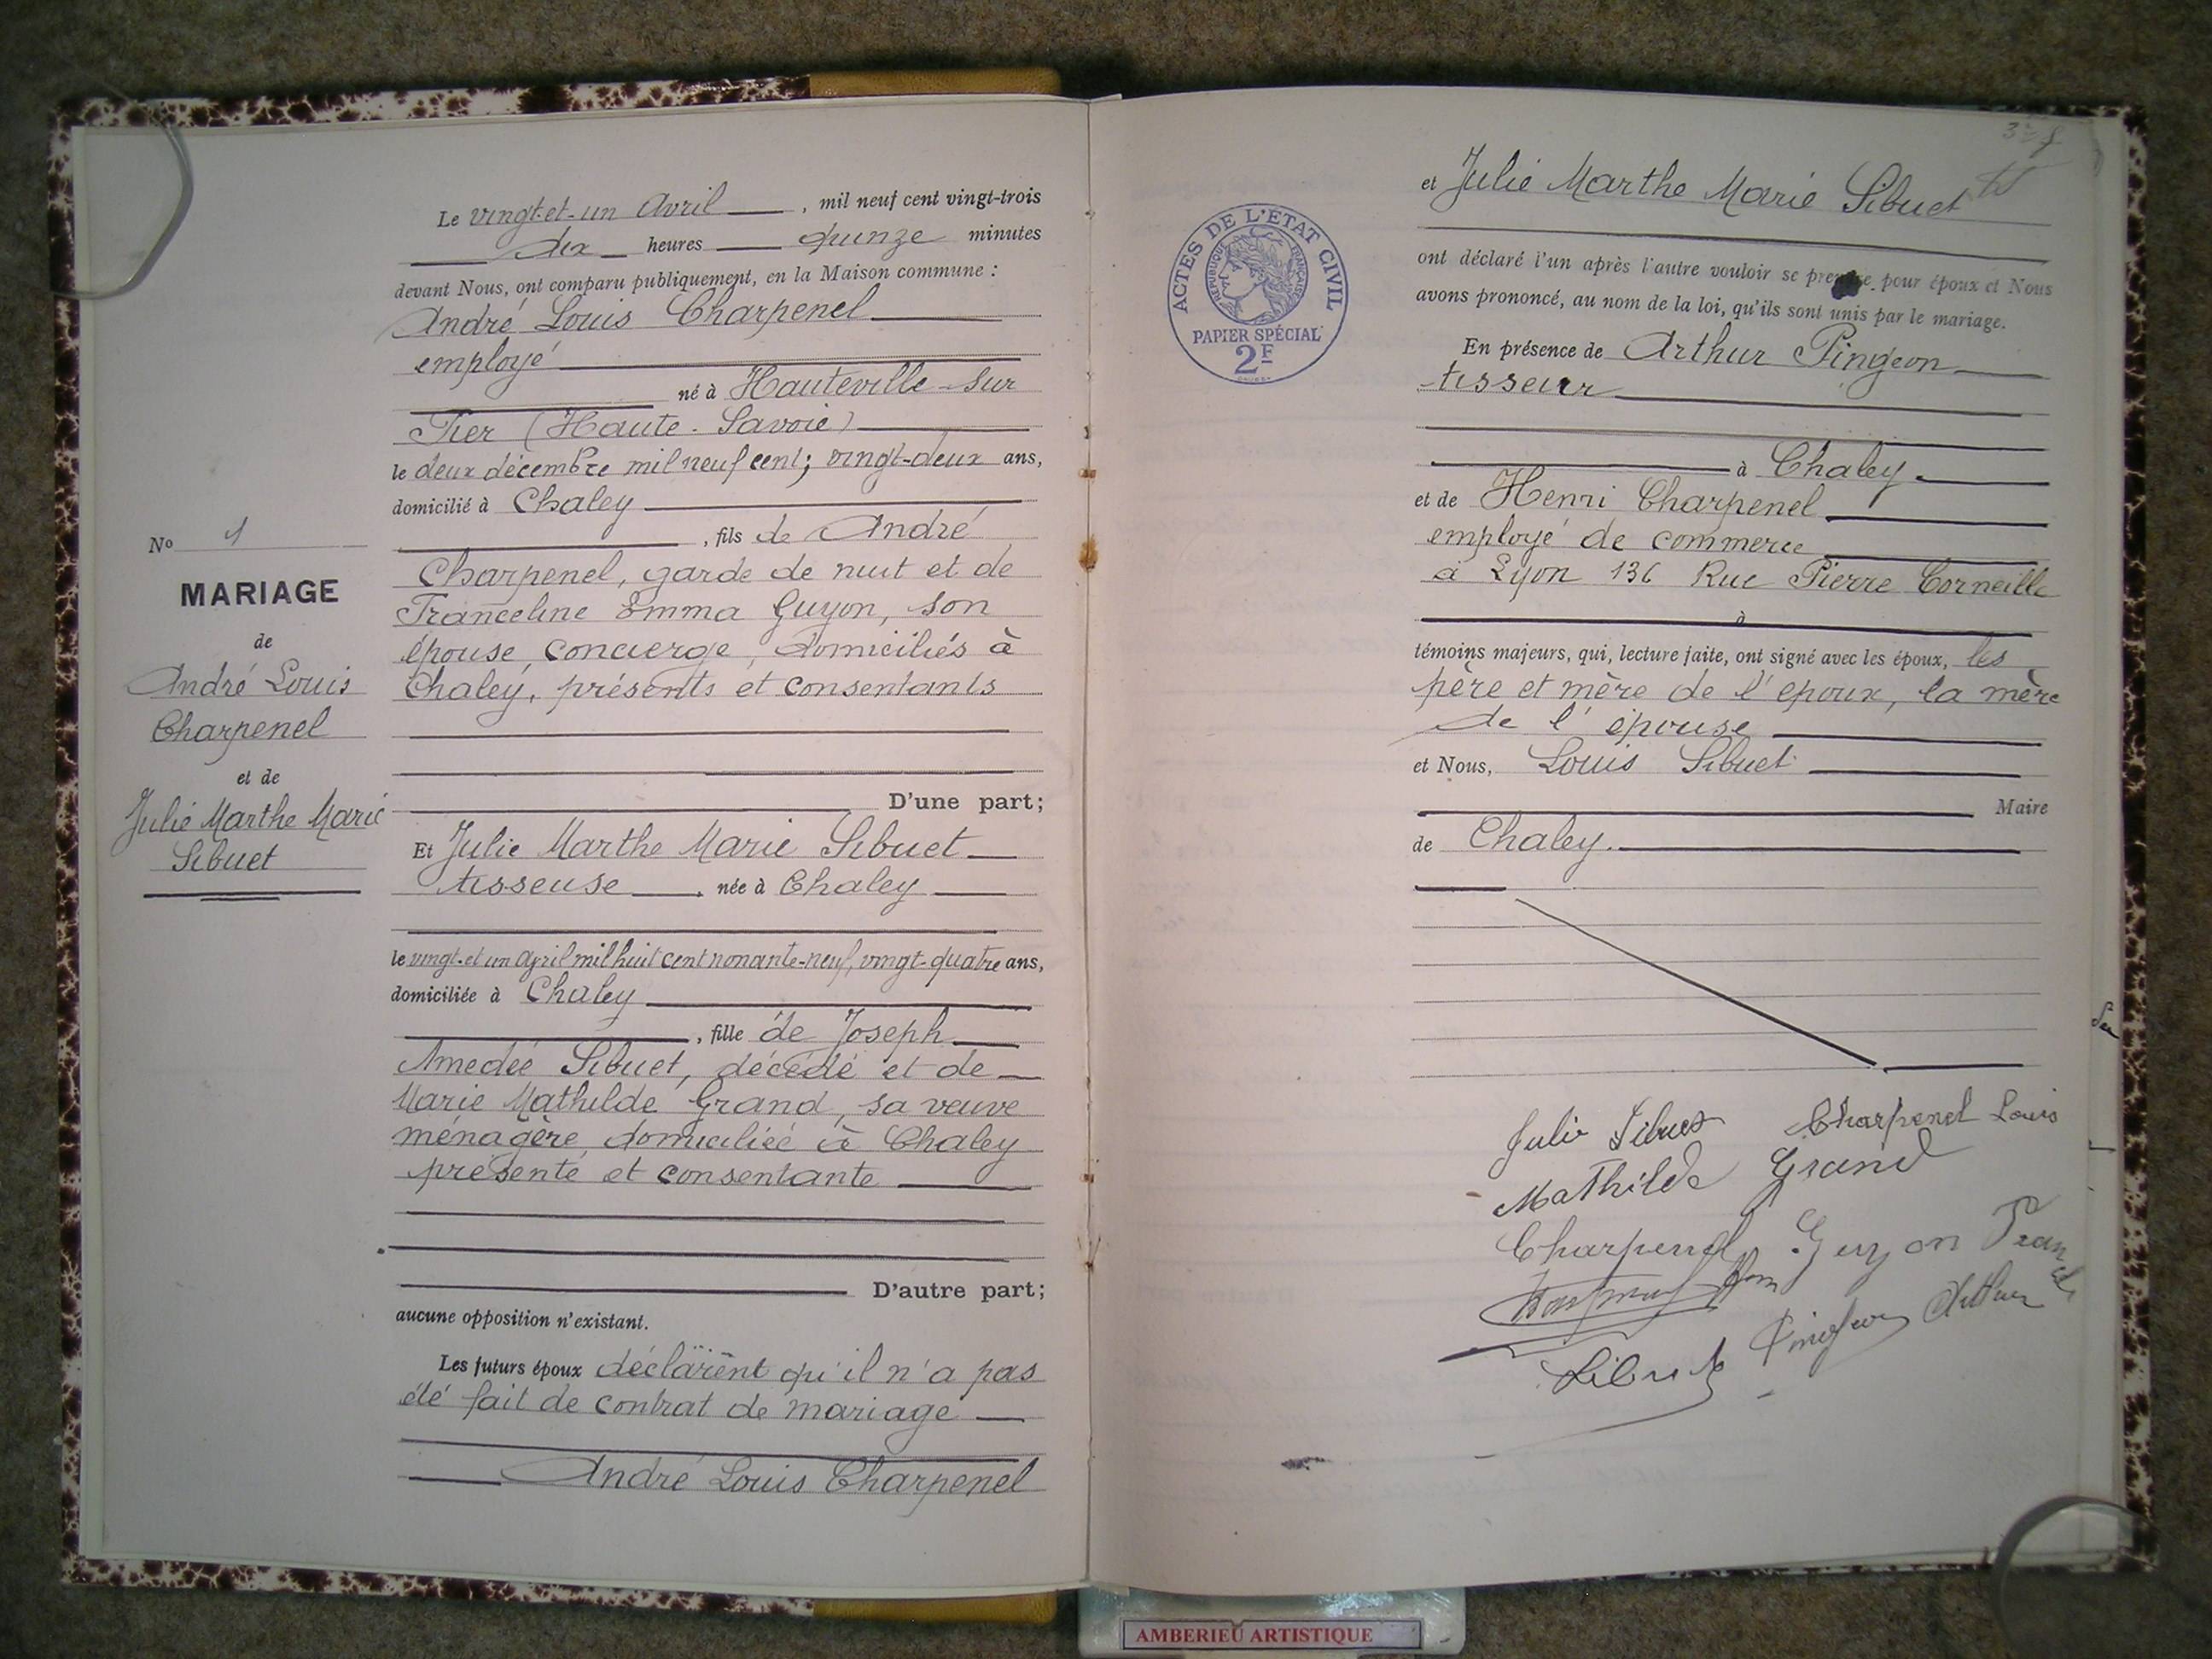 Le vingt-et-un Avril, mil neuf cent vingt-trois
dix heures quinze minutes
devant Nous, ont comparu publiquement, en la Maison commune :
André Louis Charpenel
employé
né à Hauteville-sur
Fier (Haute-Savoie)
le deux décembre mil neuf cent; vingt-deux ans,
domicilié à Chaley
, fils de André
Charpenel, garde de nuit et de
Franceline Emma Guyon, son
épouse, concierge, domiciliés à
Chaley, présents et consentants
D'une part;
Et Julie Marthe Marie Sibuet
tisseuse, née à Chaley
le vingt-et un april mil huit cent nonante-neuf, vingt-quatre ans,
domiciliée à Chaley
, fille de Joseph
Amedée Sibuet, décédé et de
Marie Mathilde Grand, sa veuve
ménagère, domiciliée à Chaley
présente et consentante
D'autre part;
aucune opposition n'existant.
Les futurs époux déclarent qu'il n'a pas
été fait de contrat de mariage
André Louis Charpenel
No 1
MARIAGE
de
André Louis
Charpenel
et de
Julie Marthe Marie
Sibuet
ACTES DE L'ETAT CIVIL
REPUBLIQUE FRANÇAISE
PAPIER SPÉCIAL
2F
et Julie Marthe Marie Sibuet
ont déclaré l'un après l'autre vouloir se prendre pour époux et Nous
avons prononcé, au nom de la loi, qu'ils sont unis par le mariage.
En présence de Arthur Pingeon
tisseur
à Chaley
et de Henri Charpenel
employé de commerce
à Lyon 136 Rue Pierre Corneille
à
témoins majeurs, qui, lecture faite, ont signé avec les époux, les
père et mère de l'epoux, la mère
de l'épouse
et Nous, Louis Sibuet
Maire
de Chaley.
Julie Sibuet Charpenel Louis
Mathilde Grand
Charpenel Guyon
Pingeon Arthur
Sibuet
AMBERIEU ARTISTIQUE